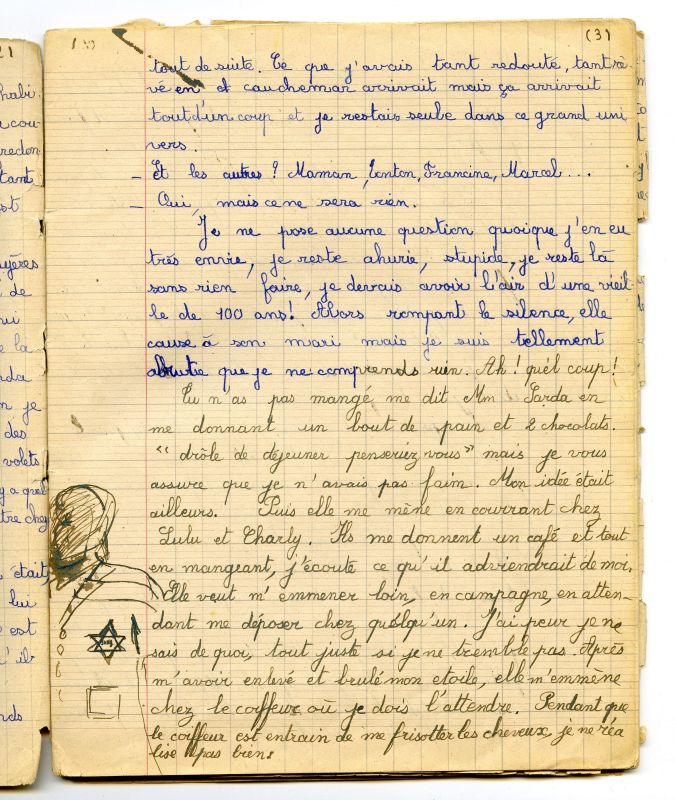 (3)
tout de suite. Ce que j'avais tant redouté, tant rê-
vé en et cauchemar arrivait mais ça arrivait
tout d'un coup et je restais seule dans ce grand uni
vers.
– Et les autres? Maman, Tonton, Francine, Marcel...
– Oui, mais ce ne sera rien.
Je ne pose aucune question quoique j'en eu
très envie, je reste ahurie, stupide, je reste là
sans rien faire, je devais avoir l'air d'une vieil-
le de 100 ans! Alors rompant le silence, elle
cause à son mari mais je suis tellement
abrutie que je ne comprends rien. Ah! quel coup!
Tu n as pas mangé me dit Mm Sarda en
me donnant un bout de pain et 2 chocolats.
"drôle de déjeuner penseriez vous" mais je vous
assure que je n'avais pas faim. Mon idée était
ailleurs. Puis elle me mène en courrant chez
Lulu et Charly. Ils me donnent un café et tout
en mangeant, j'écoute ce qu'il adviendrait de moi.
Elle veut m'emmener loin, en campagne, en atten-
dant me déposer chez quelqu'un. J'ai peur je ne
sais de quoi, tout juste si je ne tremble pas. Après
m'avoir enlevé et brulé mon etoile, elle m'emmène
chez le coiffeur où je dois l'attendre. Pendant que
le coiffeur est entrain de me frisotter les cheveux, je ne réa
lise pas bien: